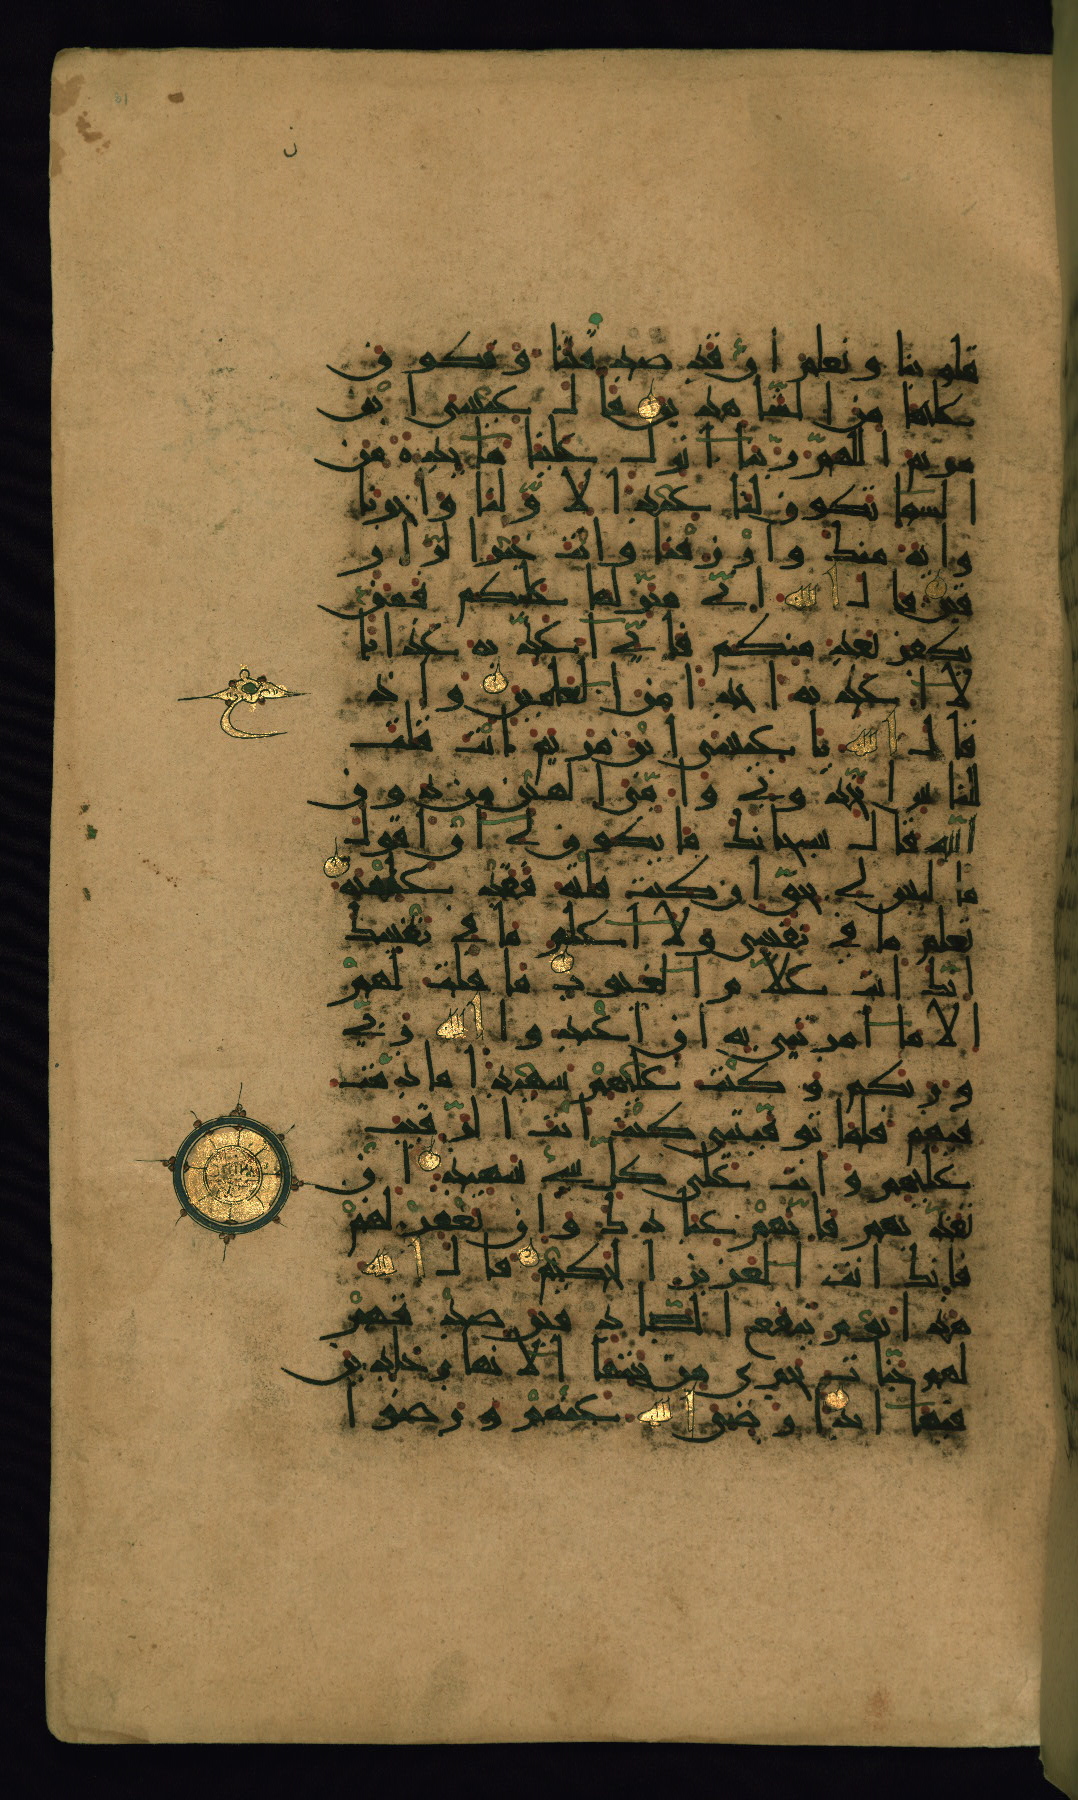 قلوبنا ونعلم ان قد صدقتنا ونكون
عليها من الشاهدين قال عيسى ابن
مريم اللهم ربنا انزل علينا مائدة من
السما تكون لنا عيدا لاولنا واخرنا
واية منك وارزقنا وانت خير الراز
قين قال الله اني منزلها عليكم فمن
يكفر بعد منكم فاني اعذبه عذابا
لا اعذبه احدا من العلمين واذ
قال الله يا عيسى ابن مريم انت قلت
للناس اتخذوني وامي الهين من دون
الله قال سبحانك ما يكون لي ان اقول
ما ليس لي بحق ان كنت قلته فقد علمته
تعلم ما في نفسي ولا اعلم ما في نفسك
انك انت علام الغيوب ما قلت لهم
الا ما امرتني به ان اعبدوا الله ربي
وربكم وكنت عليهم شهيدا ما دمت
فيهم فلما توفيتني كنت انت الرقيب
عليهم وانت على كل شي شهيد ان
تعذبهم فانهم عبادك وان تغفر لهم
فانك انت العزيز الحكيم قال الله
هذا يوم ينفع الصادقين صدقهم
لهم جنات تجري من تحتها الانهار خالدين
فيها ابدا رضي الله عنهم ورضوا